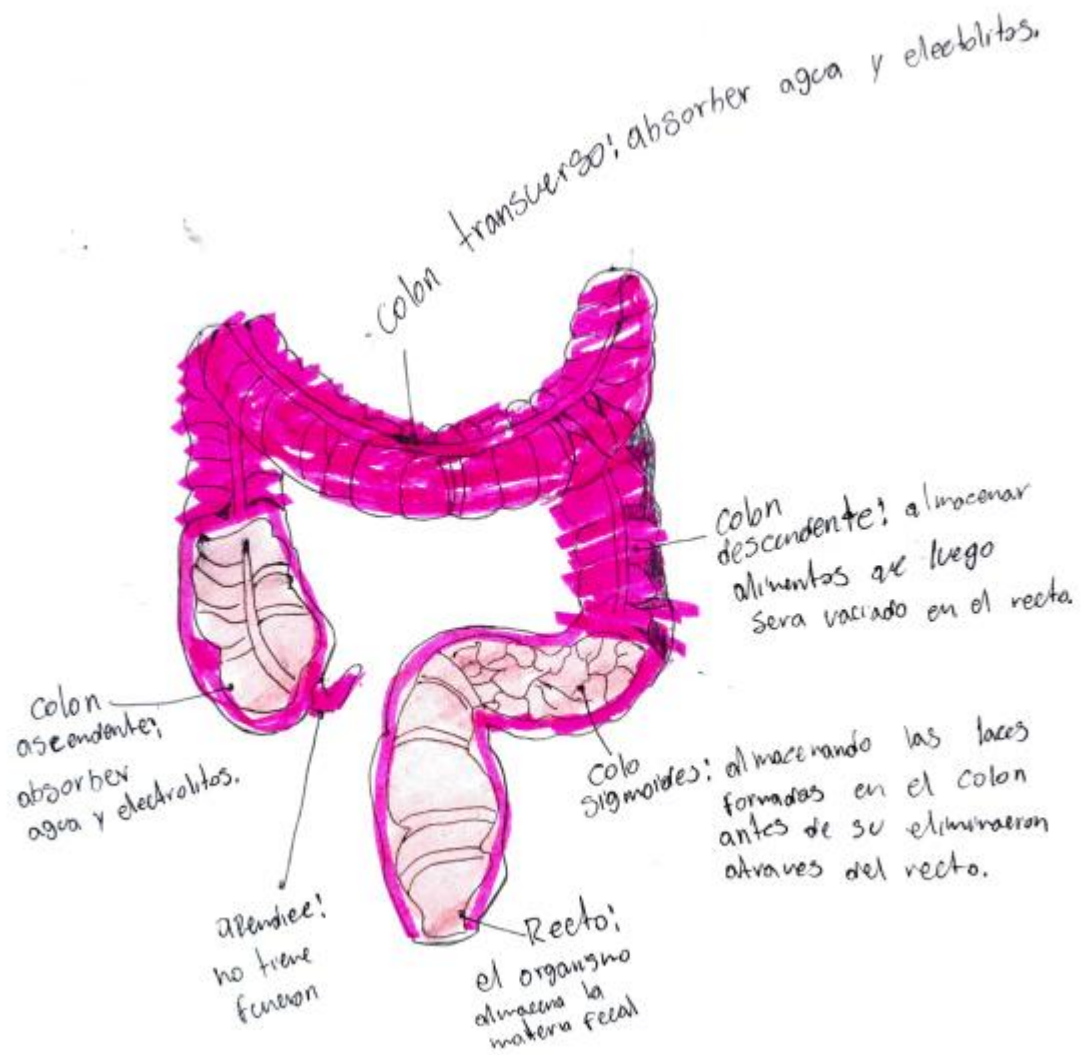 colon transverso: absorber agua y electolitos.
colon
descendente: almacenar
alimentos que luego
sera vaciado en el recto.
colon
ascendente:
absorber
agua y electrolitos.
colo
sigmoides:
almacenando las faces
formadas en el colon
antes de su eliminaeron
atraves del recto.
apendice:
no tiene
funcion
Recto:
el organismo
almacena la
materia fecal